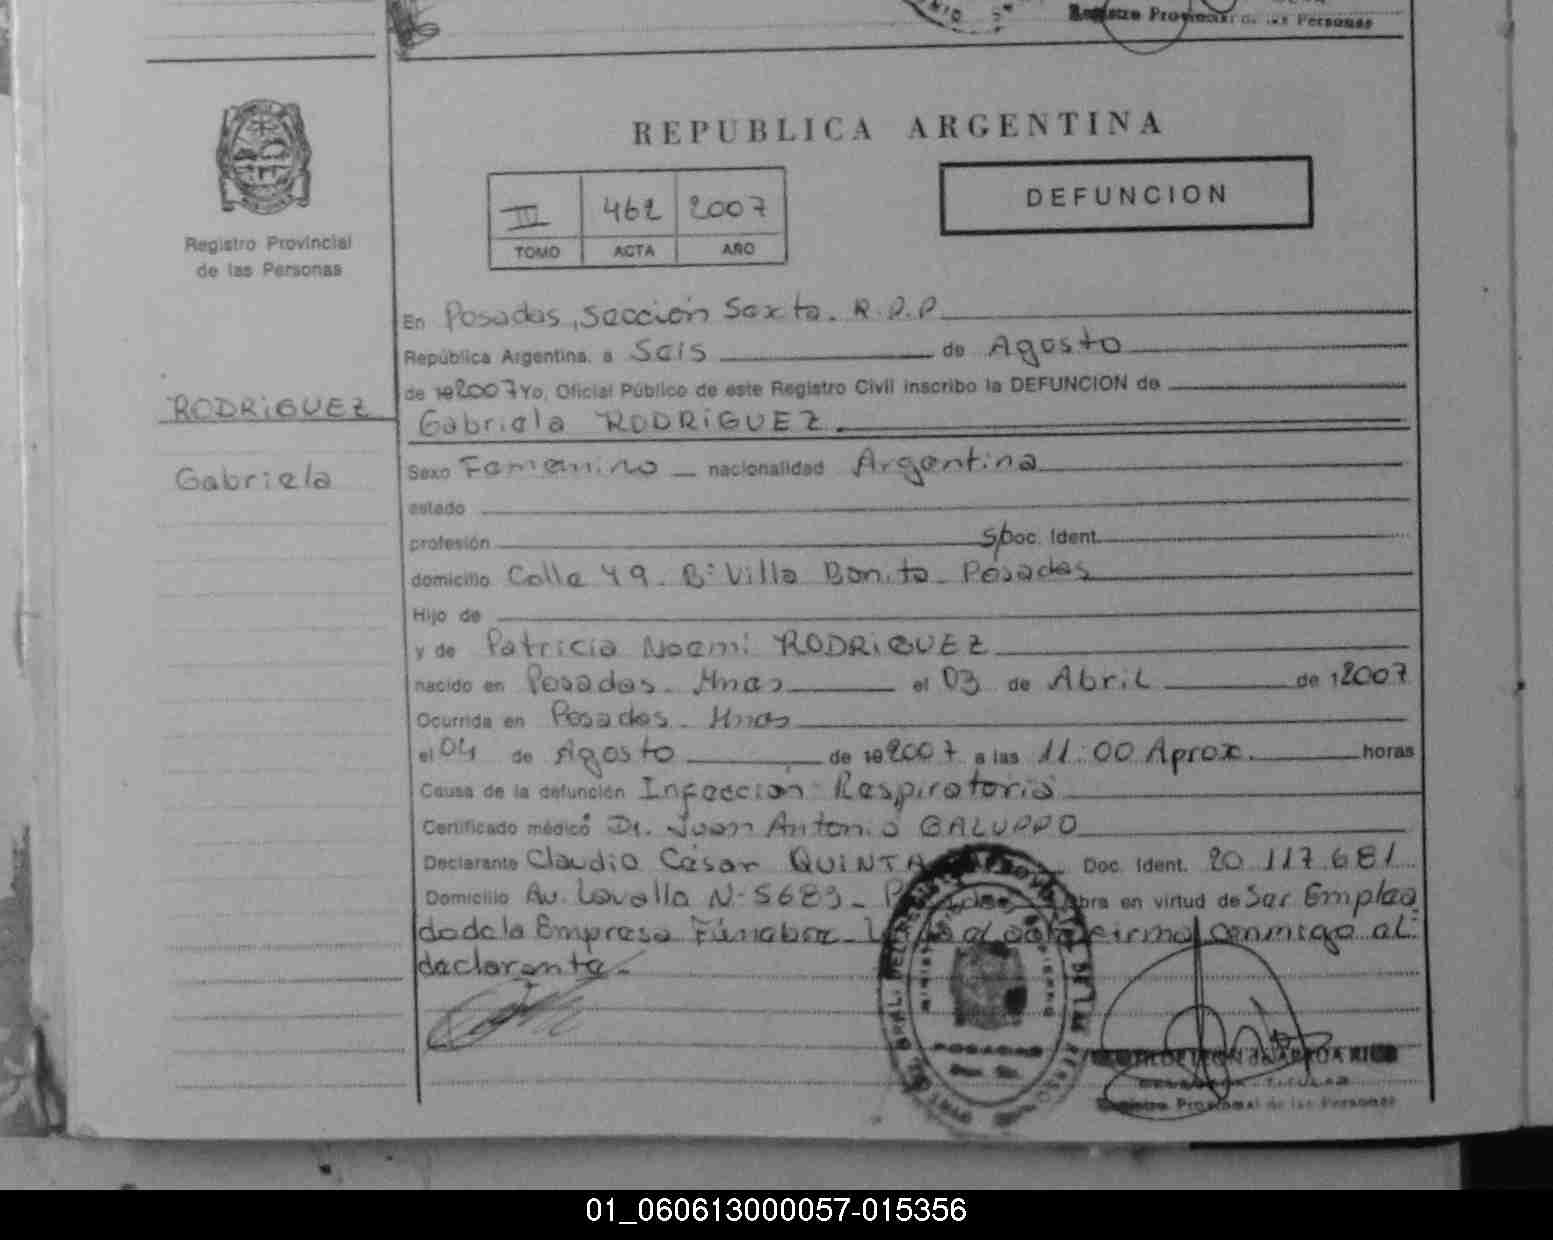 Registro Provincial de las Personas
REPUBLICA ARGENTINA
DEFUNCION
III 462 2007
TOMO ACTA AÑO
Registro Provincial
de las Personas
RODRIGUEZ
Gabriela
En Posadas, Sección Sexta. R.P.P
República Argentina, a Seis de Agosto
de 192007 Yo, Oficial Público de este Registro Civil inscribo la DEFUNCION de
Gabriela RODRIGUEZ.
Sexo Femenino nacionalidad Argentina
estado
profesión S/Doc. Ident.
domicilio Calle 49. Bº Villa Bonita Posadas
Hijo de
y de Patricia Noemi RODRIGUEZ
nacido en Posadas. Mnes el 03 de Abril de 12007
Ocurrida en Posadas. Mnes
el 04 de Agosto de 192007 a las 11:00 Aprox. horas
Causa de la defunción Infección Respiratoria
Certificado médico Dr. Juan Antonio GALUPPO
Declarante Claudio César QUINTA Doc. Ident. 20.117.681
Domicilio Av. Lavalle Nº 5689 obra en virtud de Ser Emplea
do de la Empresa Fúnebre firma conmigo el
declarante.
POSADAS
Registro Provincial de las Personas
01_060613000057-015356